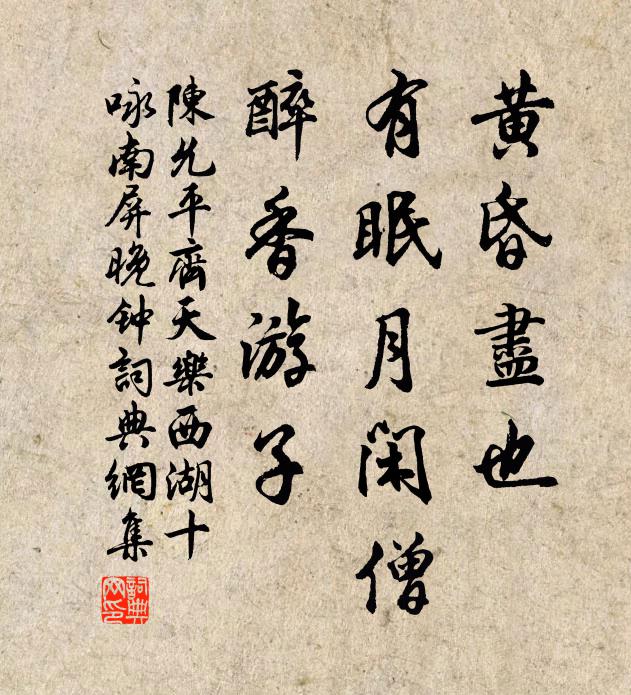 黃昏盡也
有眠月閑僧
醉香游子
陳允平齊天樂西湖十
咏南屏晚钟詞典網集
詞典
网印